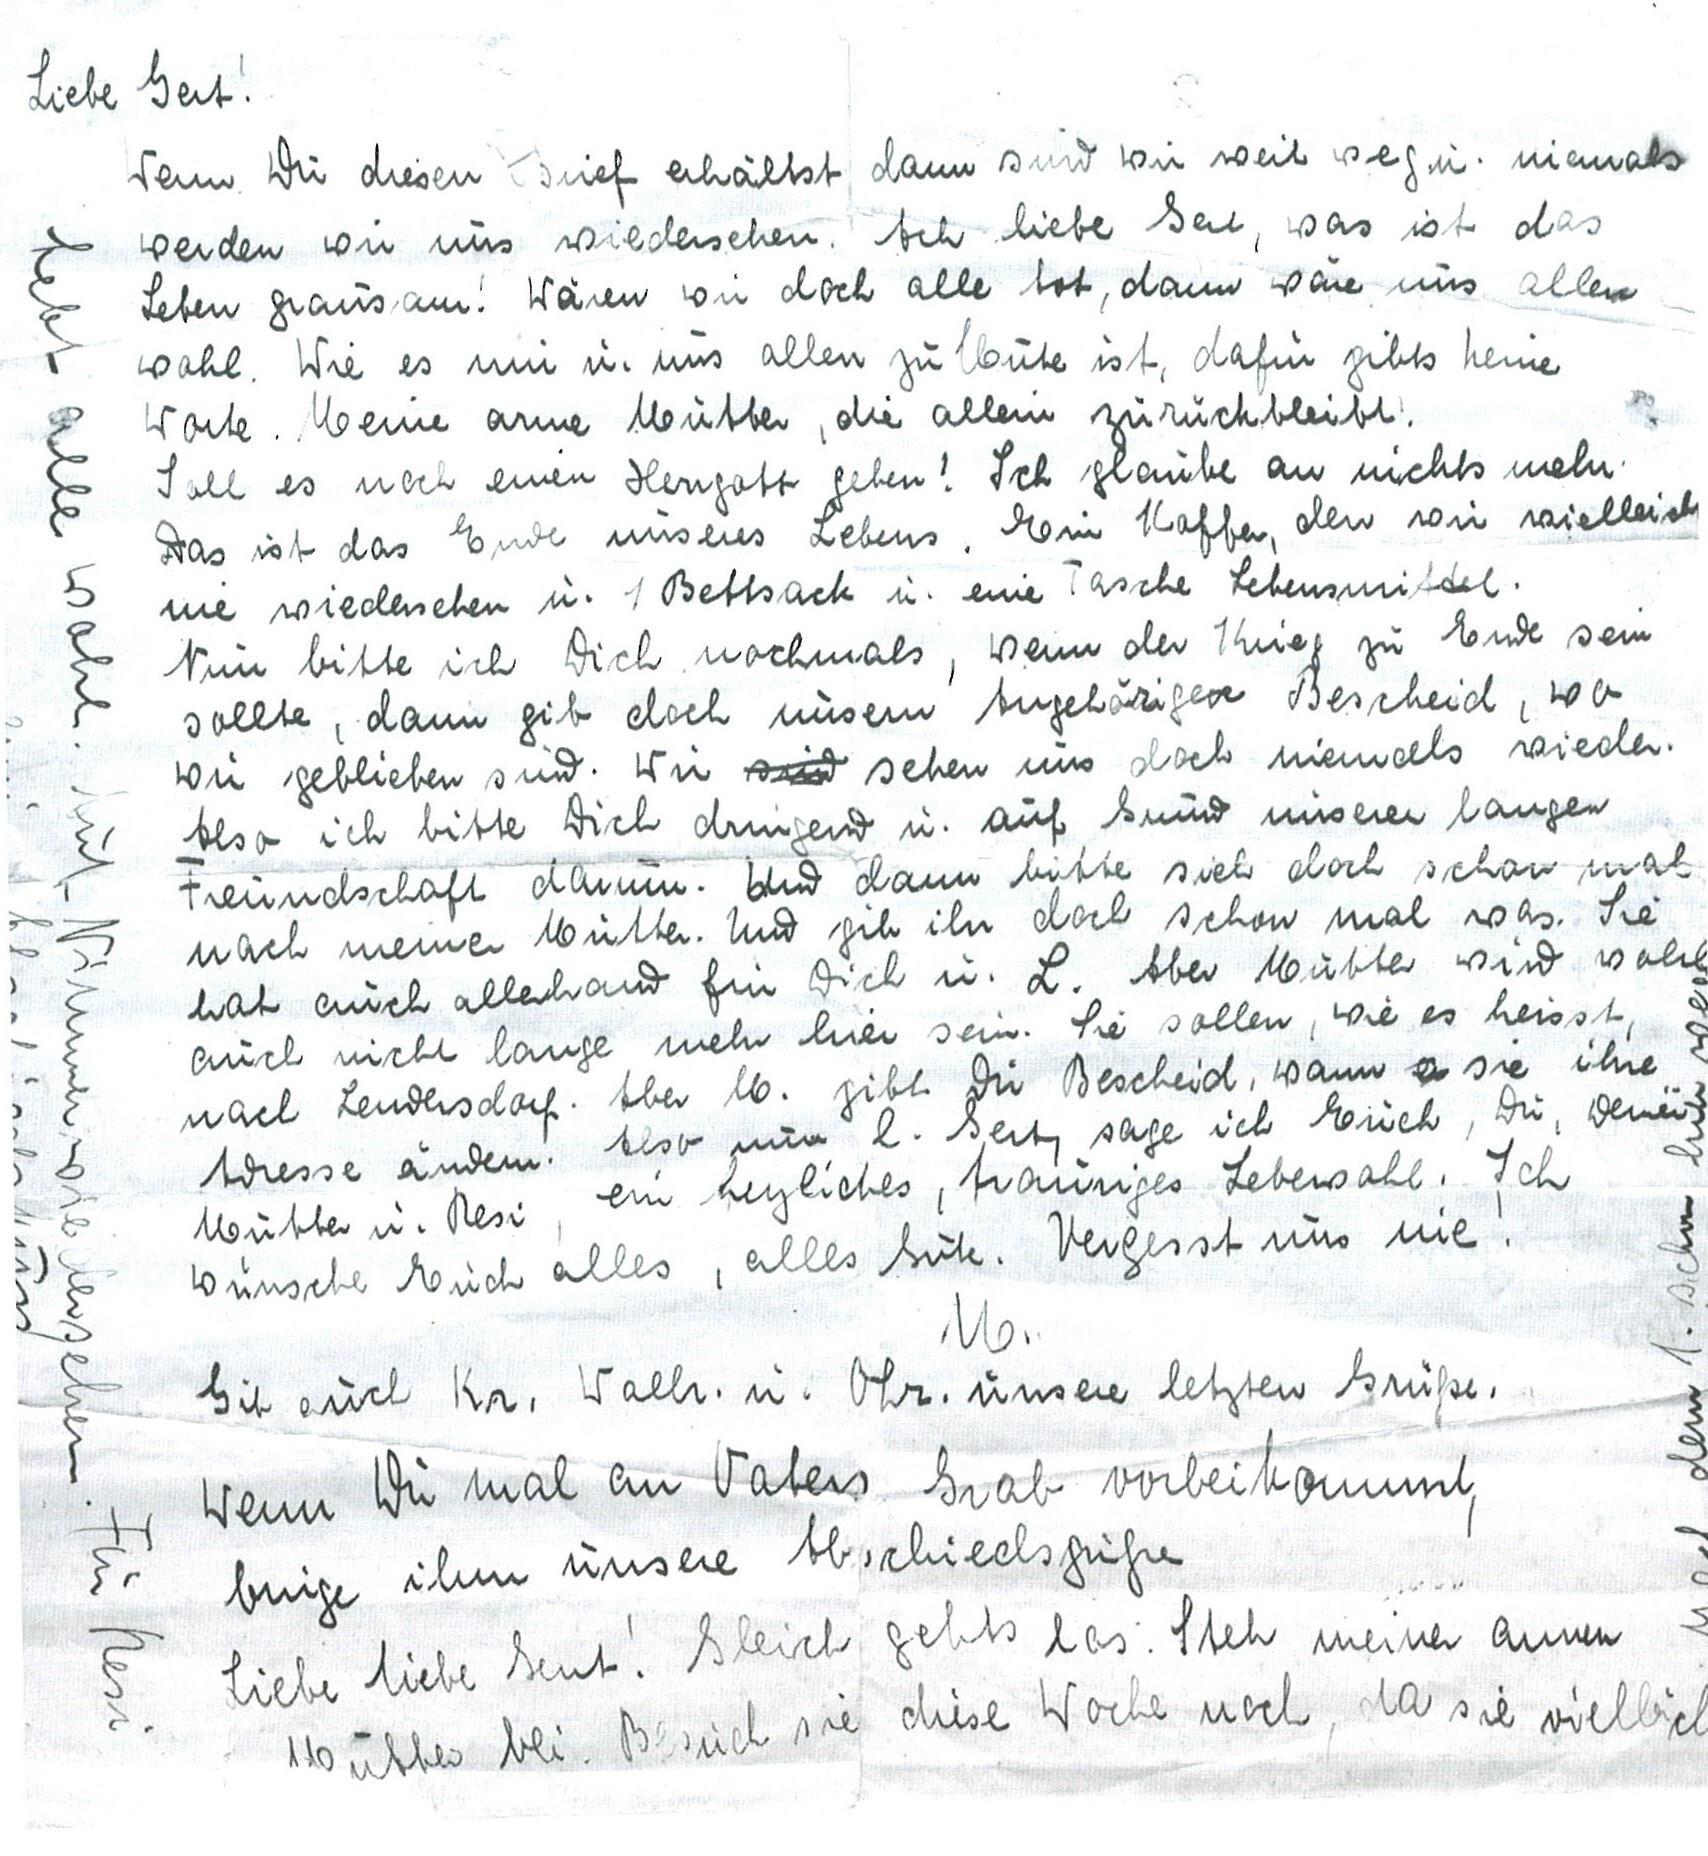 Liebe Gert!
Wenn Du diesen Brief erhältst dann sind wir weit weg u. niemals
werden wir uns wiedersehen. Ach liebe Gert, was ist das
Leben grausam! Wären wir doch alle tot, dann wäre uns allen
wohl. Wie es mir u. uns allen zu Mute ist, dafür gibts keine
Worte. Meine arme Mutter, die allein zurückbleibt!
Soll es noch einen Herrgott geben! Ich glaube an nichts mehr.
Das ist das Ende unseres Lebens. Ein Koffer, den wir vielleich
nie wiedersehen u. 1 Bettsack u. eine Tasche Lebensmittel.
Nun bitte ich Dich nochmals, wenn der Krieg zu Ende sein
sollte, dann gib doch unsern Angehörigen Bescheid, wo
wir geblieben sind. Wir sehen uns doch niemals wieder.
Also ich bitte Dich dringend u. auf Grund unserer langen
Freundschaft darum. Und dann bitte sieh doch schon mal
nach meiner Mutter. Und gib ihr doch schon mal was. Sie
hat auch allerhand für Dich u. L. Aber Mutter wird wohl
auch nicht lange mehr hier sein. Sie sollen, wie es heisst,
nach Lendersdorf. Aber M. gibt Dir Bescheid, wann sie ihre
Adresse ändern. Also nun l. Gert, sage ich Euch, Dir, Deiner
Mutter u. Resi, ein herzliches, trauriges Lebewohl. Ich
wünsche Euch alles, alles Gute. Vergesst uns nie!
M.
Gib auch Kr. Wallr. u. Ohr. unsere letzten Grüße.
Wenn Du mal an Vaters Grab vorbeikommst,
bringe ihm unsere Abschiedsgrüße
Liebe liebe Gert! Gleich gehts los. Steh meiner armen
Mutter bei. Besuch sie diese Woche noch, da sie vielleich
nach dem 1. schon hier
Lebt alle wohl. Auf Nimmerwiedersehen. Für Resi.